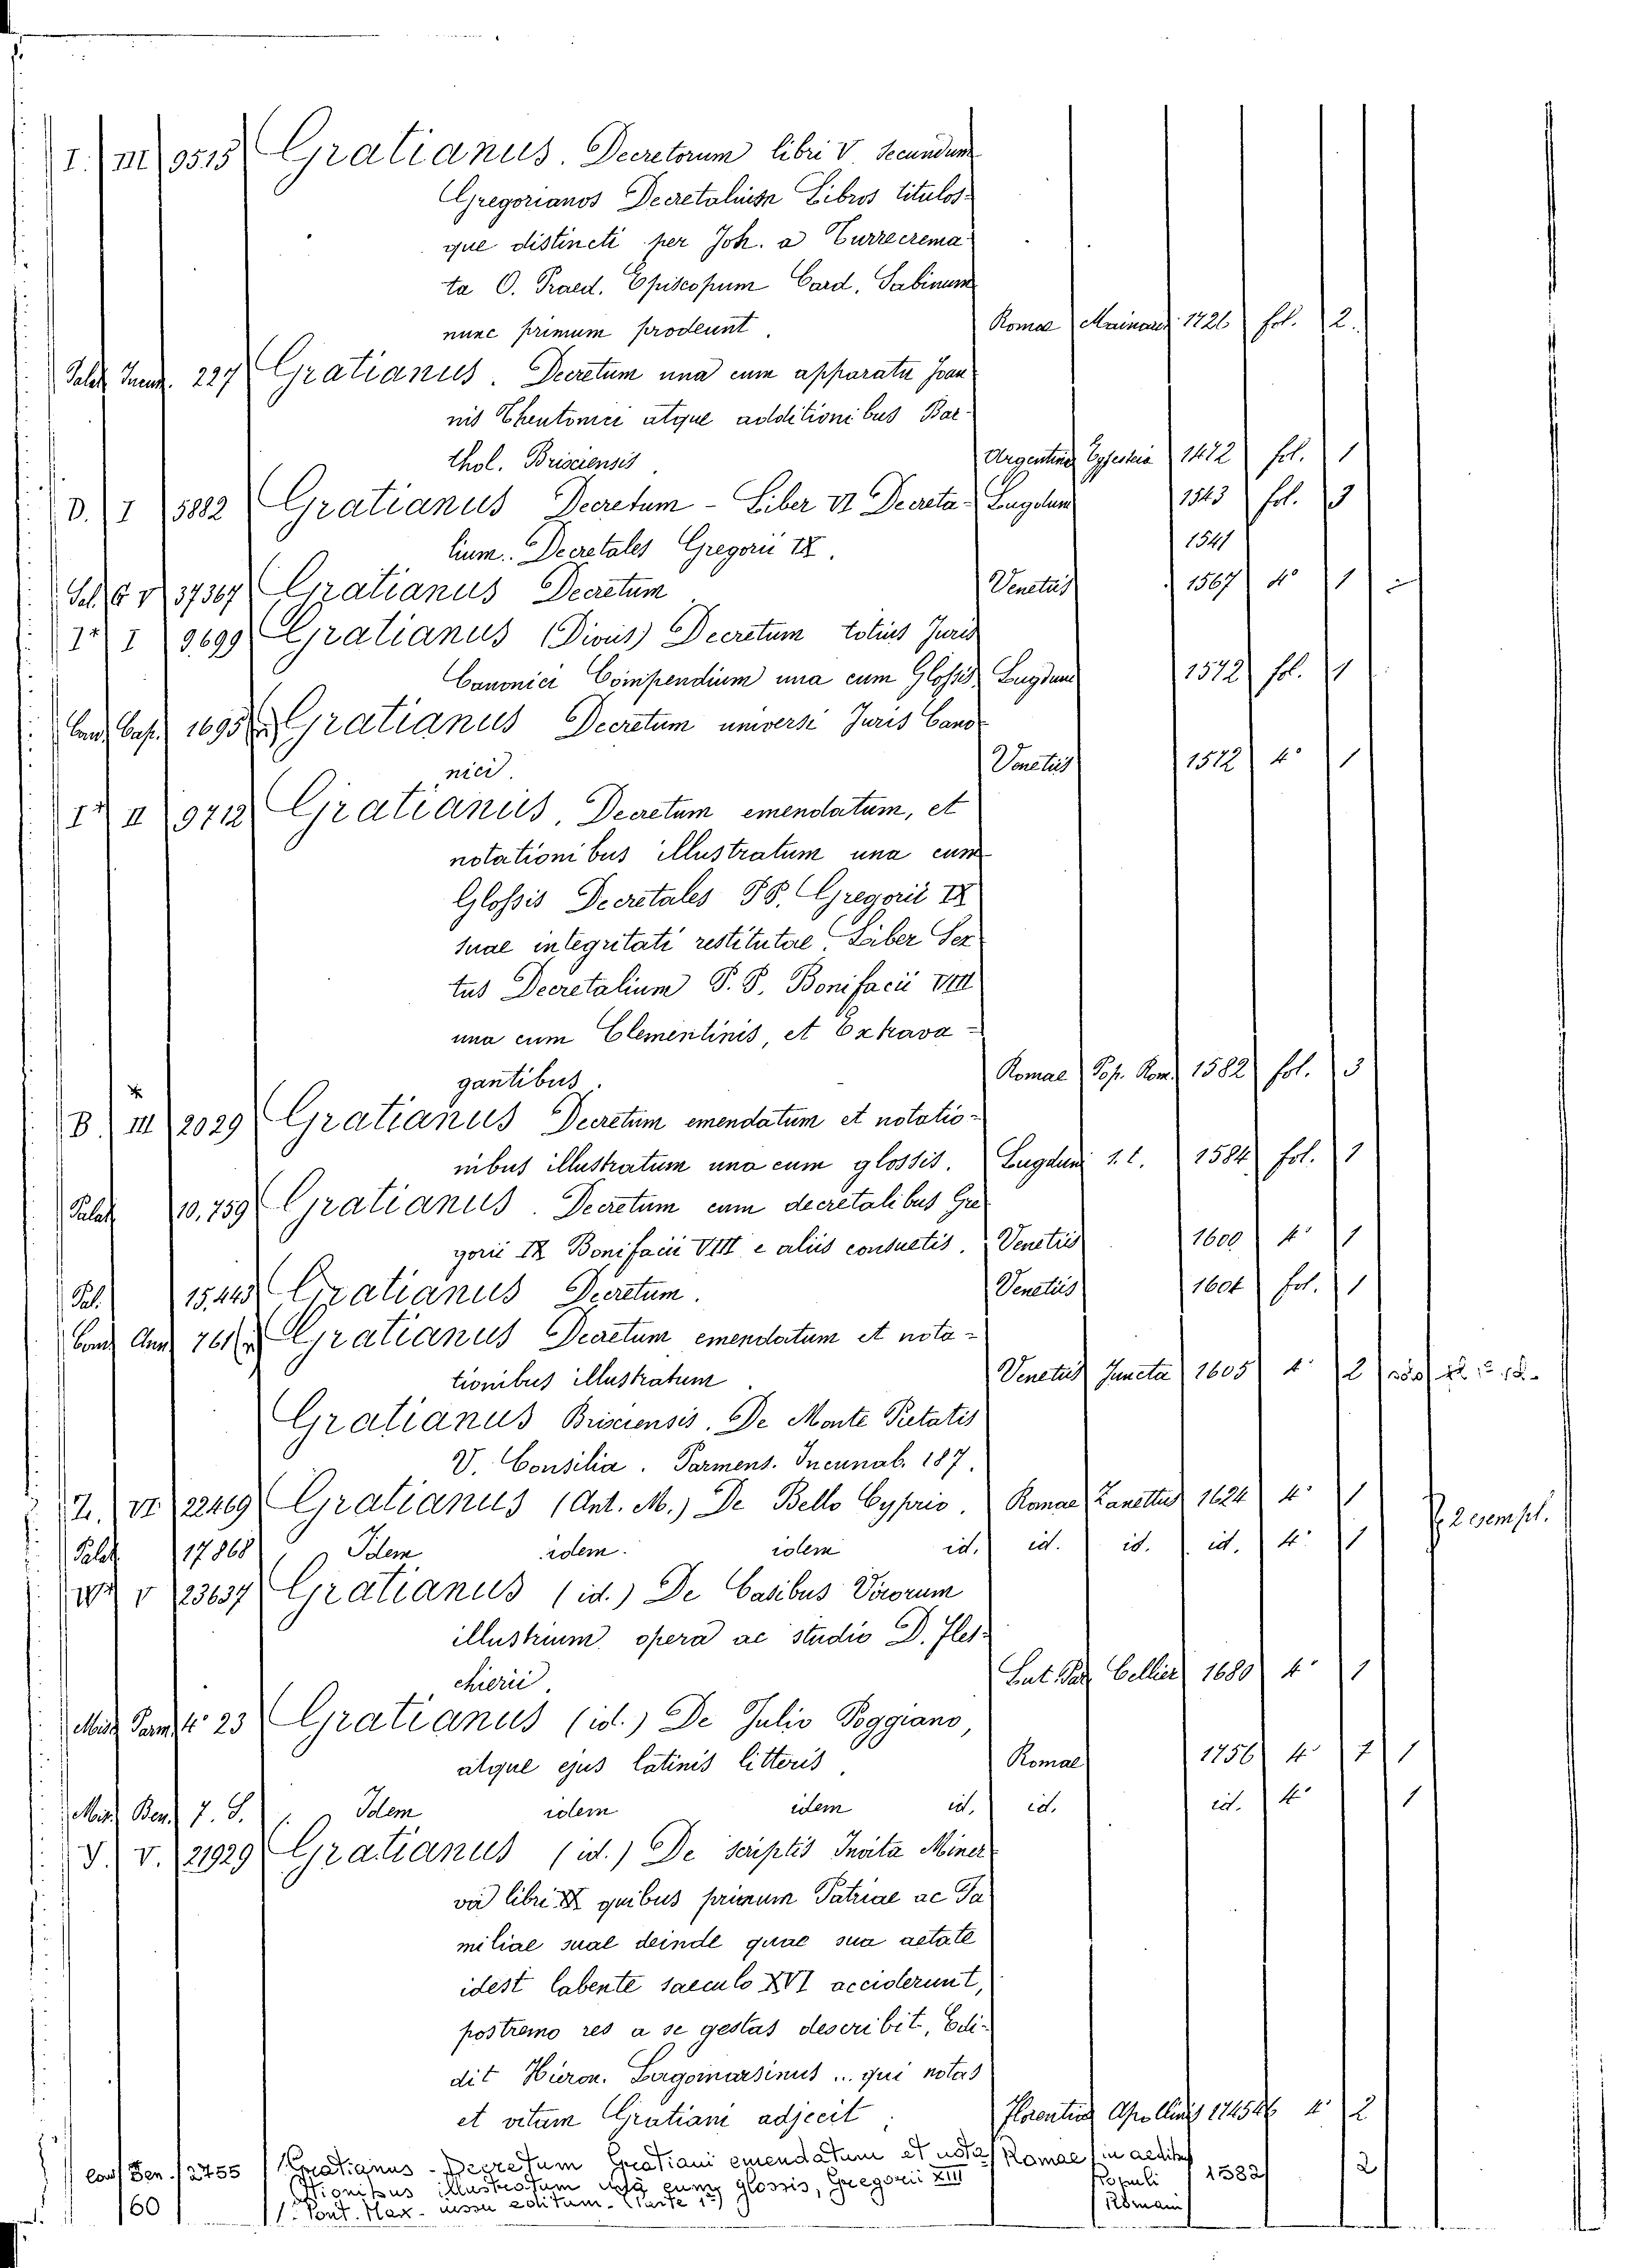 I. III 9515 Gratianus. Decretorum libri V secundum
Gregorianos Decretalium Libros titulos-
que distincti per Joh. a Turrecrema-
ta O. Praed. Episcopum Card. Sabinum
nunc primum prodeunt. Romae Mainardi 1726 fol. 2.
Palat. 227 Gratianus. Decretum una cum apparatu Joan-
nis Theutonici atque additionibus Bar-
thol. Brisciensis. Argentinae Eggestein 1472 fol. 1
D. I 5882 Gratianus Decretum - Liber VI Decreta- Lugduni 1543 fol. 3
lium. Decretales Gregorii IX. 1541
Sel. G V 37367 Gratianus Decretum Venetiis 1567 4° 1
I I 9699 Gratianus (Divus) Decretum totius Juris
Canonici Compendium una cum Glossis Lugduni 1572 fol. 1
Cas. 1695 Gratianus Decretum universi Juris Cano-
nici. Venetiis 1572 4° 1
I II 9712 Gratianus. Decretum emendatum, et
notationibus illustratum una cum
Glossis Decretales PP. Gregorii IX
suae integritati restitutae. Liber Sex-
tus Decretalium P. P. Bonifacii VIII
una cum Clementinis, et Extrava-
gantibus. Romae Pop. Rom. 1582 fol. 3
B. III 2029 Gratianus Decretum emendatum et notatio-
nibus illustratum una cum glossis. Lugduni s. t. 1584 fol. 1
Palat. 10,759 Gratianus. Decretum cum decretalibus Gre-
gorii IX Bonifacii VIII e aliis consuetis. Venetiis 1600 4° 1
Pal. 15,443 Gratianus Decretum. Venetiis 1604 fol. 1
761 Gratianus Decretum emendatum et nota-
tionibus illustratum Venetiis Juncta 1605 4° 2
Gratianus Brisciensis. De Monte Pietatis
V. Consilia. Parmens. Incunab. 187.
Z. VI 22469 Gratianus (Ant. M.) De Bello Cyprio. Romae Zanettus 1624 4° 1 2 esempl.
Palat. 17868 Idem idem. idem id. id. id. id. 4° 1
V 23637 Gratianus (id.) De Casibus Virorum
illustrium opera ac studio D. Fles-
chierii. Lut. Par. Cellier 1680 4° 1
Misc. Parm. 4° 23 Gratianus (id.) De Julio Poggiano,
atque ejus latinis litteris. Romae 1756 4° 7 1
Misc. Ben. 7. 8. Idem idem idem id. id. id. 4° 1
V. V. 21929 Gratianus (id.) De scriptis Invita Miner-
va libri XX quibus primum Patriae ac Fa-
miliae suae deinde quae sua aetate
idest labente saeculo XVI acciderunt,
postremo res a se gestas describit, Edi-
dit Hieron. Lagomarsinus... qui notas
et vitam Gratiani adjecit; Florentiae Apollinis 1745 46 4° 2
Ben. 2755 Gratianus - Decretum Gratiani emendatum et nota- Romae in aedibus
tionibus illustratum una cum glossis, Gregorii XIII Populi 1582 2
60 Pont. Max. iussu editum. (Parte 1ª) Romani